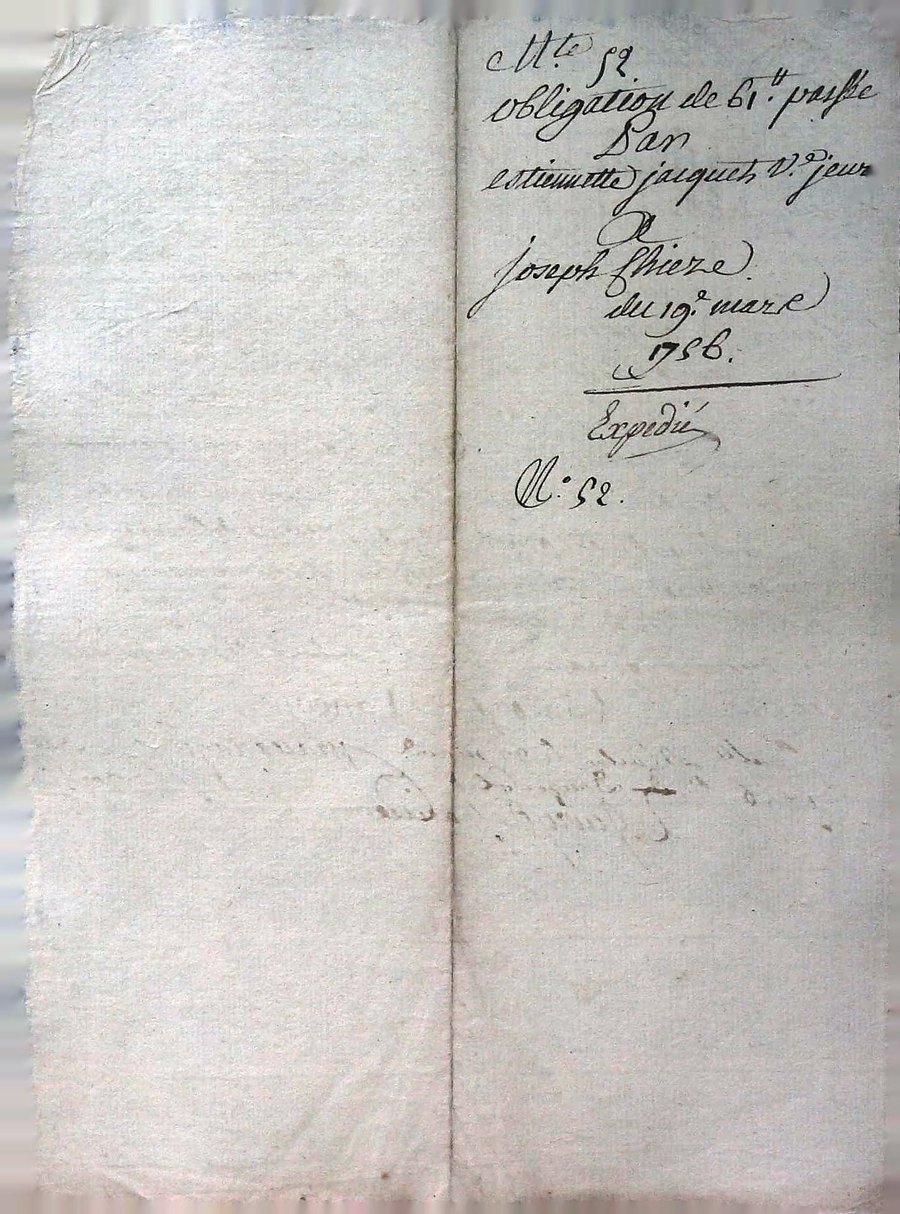 Mte
52
obligation de 61.tt passée
Par
estiennette jacquet V.e jeur
A
joseph thieze
du 19.e mars
1756.
Expedié
N.o 52.